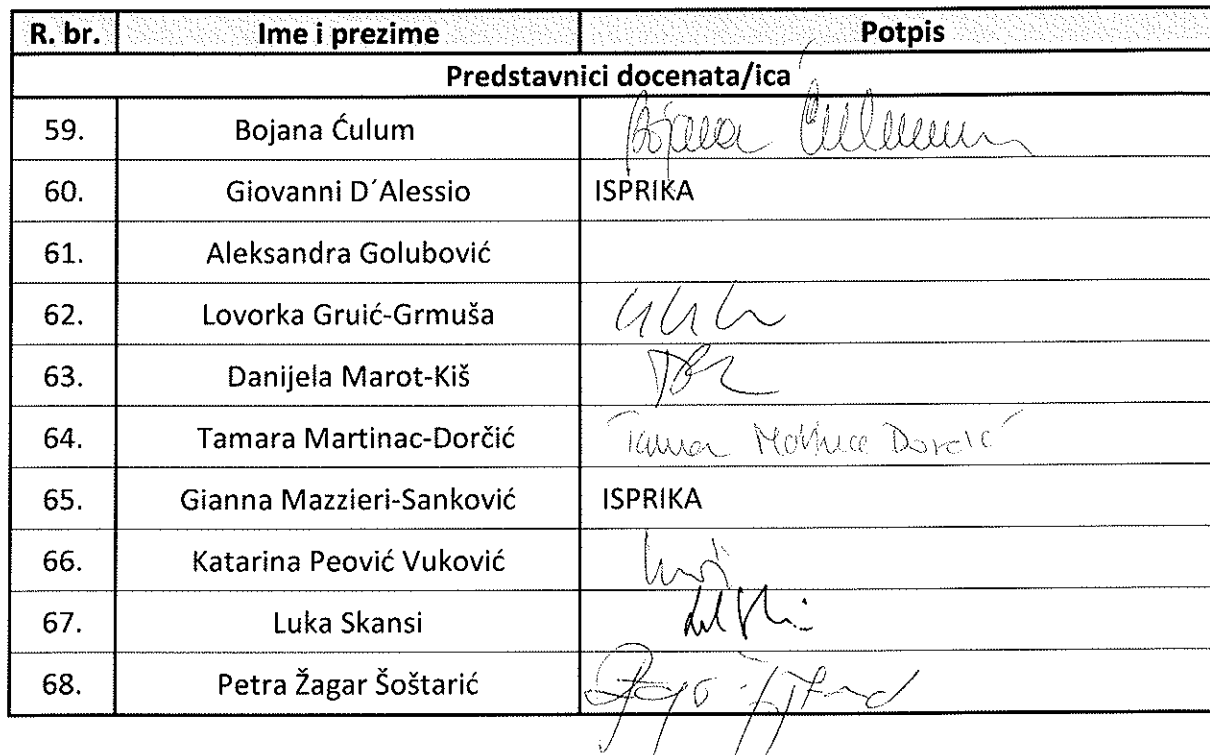 R. br. Ime i prezime Potpis
Predstavnici docenata/ica
59. Bojana Ćulum Bojana Ćulum
60. Giovanni D´Alessio ISPRIKA
61. Aleksandra Golubović
62. Lovorka Gruić-Grmuša
63. Danijela Marot-Kiš
64. Tamara Martinac-Dorčić Tamara Martinac Dorčić
65. Gianna Mazzieri-Sanković ISPRIKA
66. Katarina Peović Vuković
67. Luka Skansi
68. Petra Žagar Šoštarić